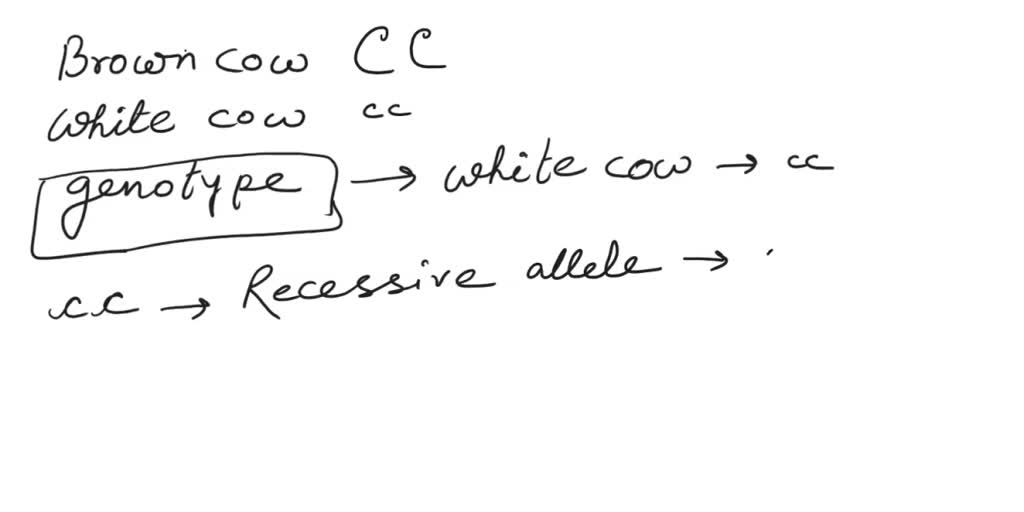 Brown cow CC
white cow cc
genotype → white cow → cc
cc → Recessive allele →